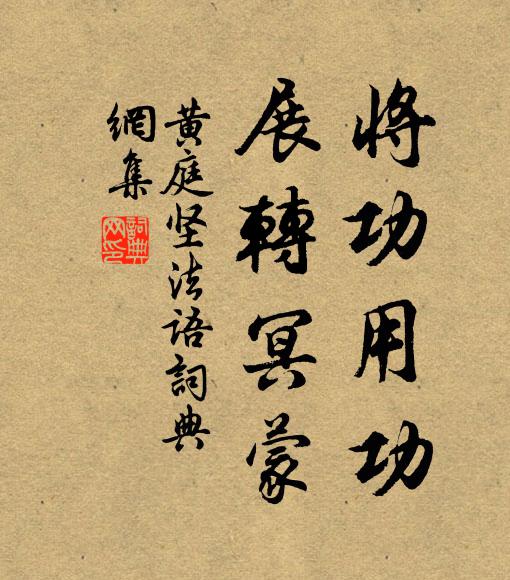 將功用功
展轉冥蒙
黄庭坚法語詞典
網集
詞典網印